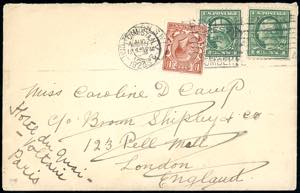 Miss Caroline D Camp
c/o Brown Shipley & Co
123 Pall Mall
London
England
Hotel du Quai-
Voltaire
Paris